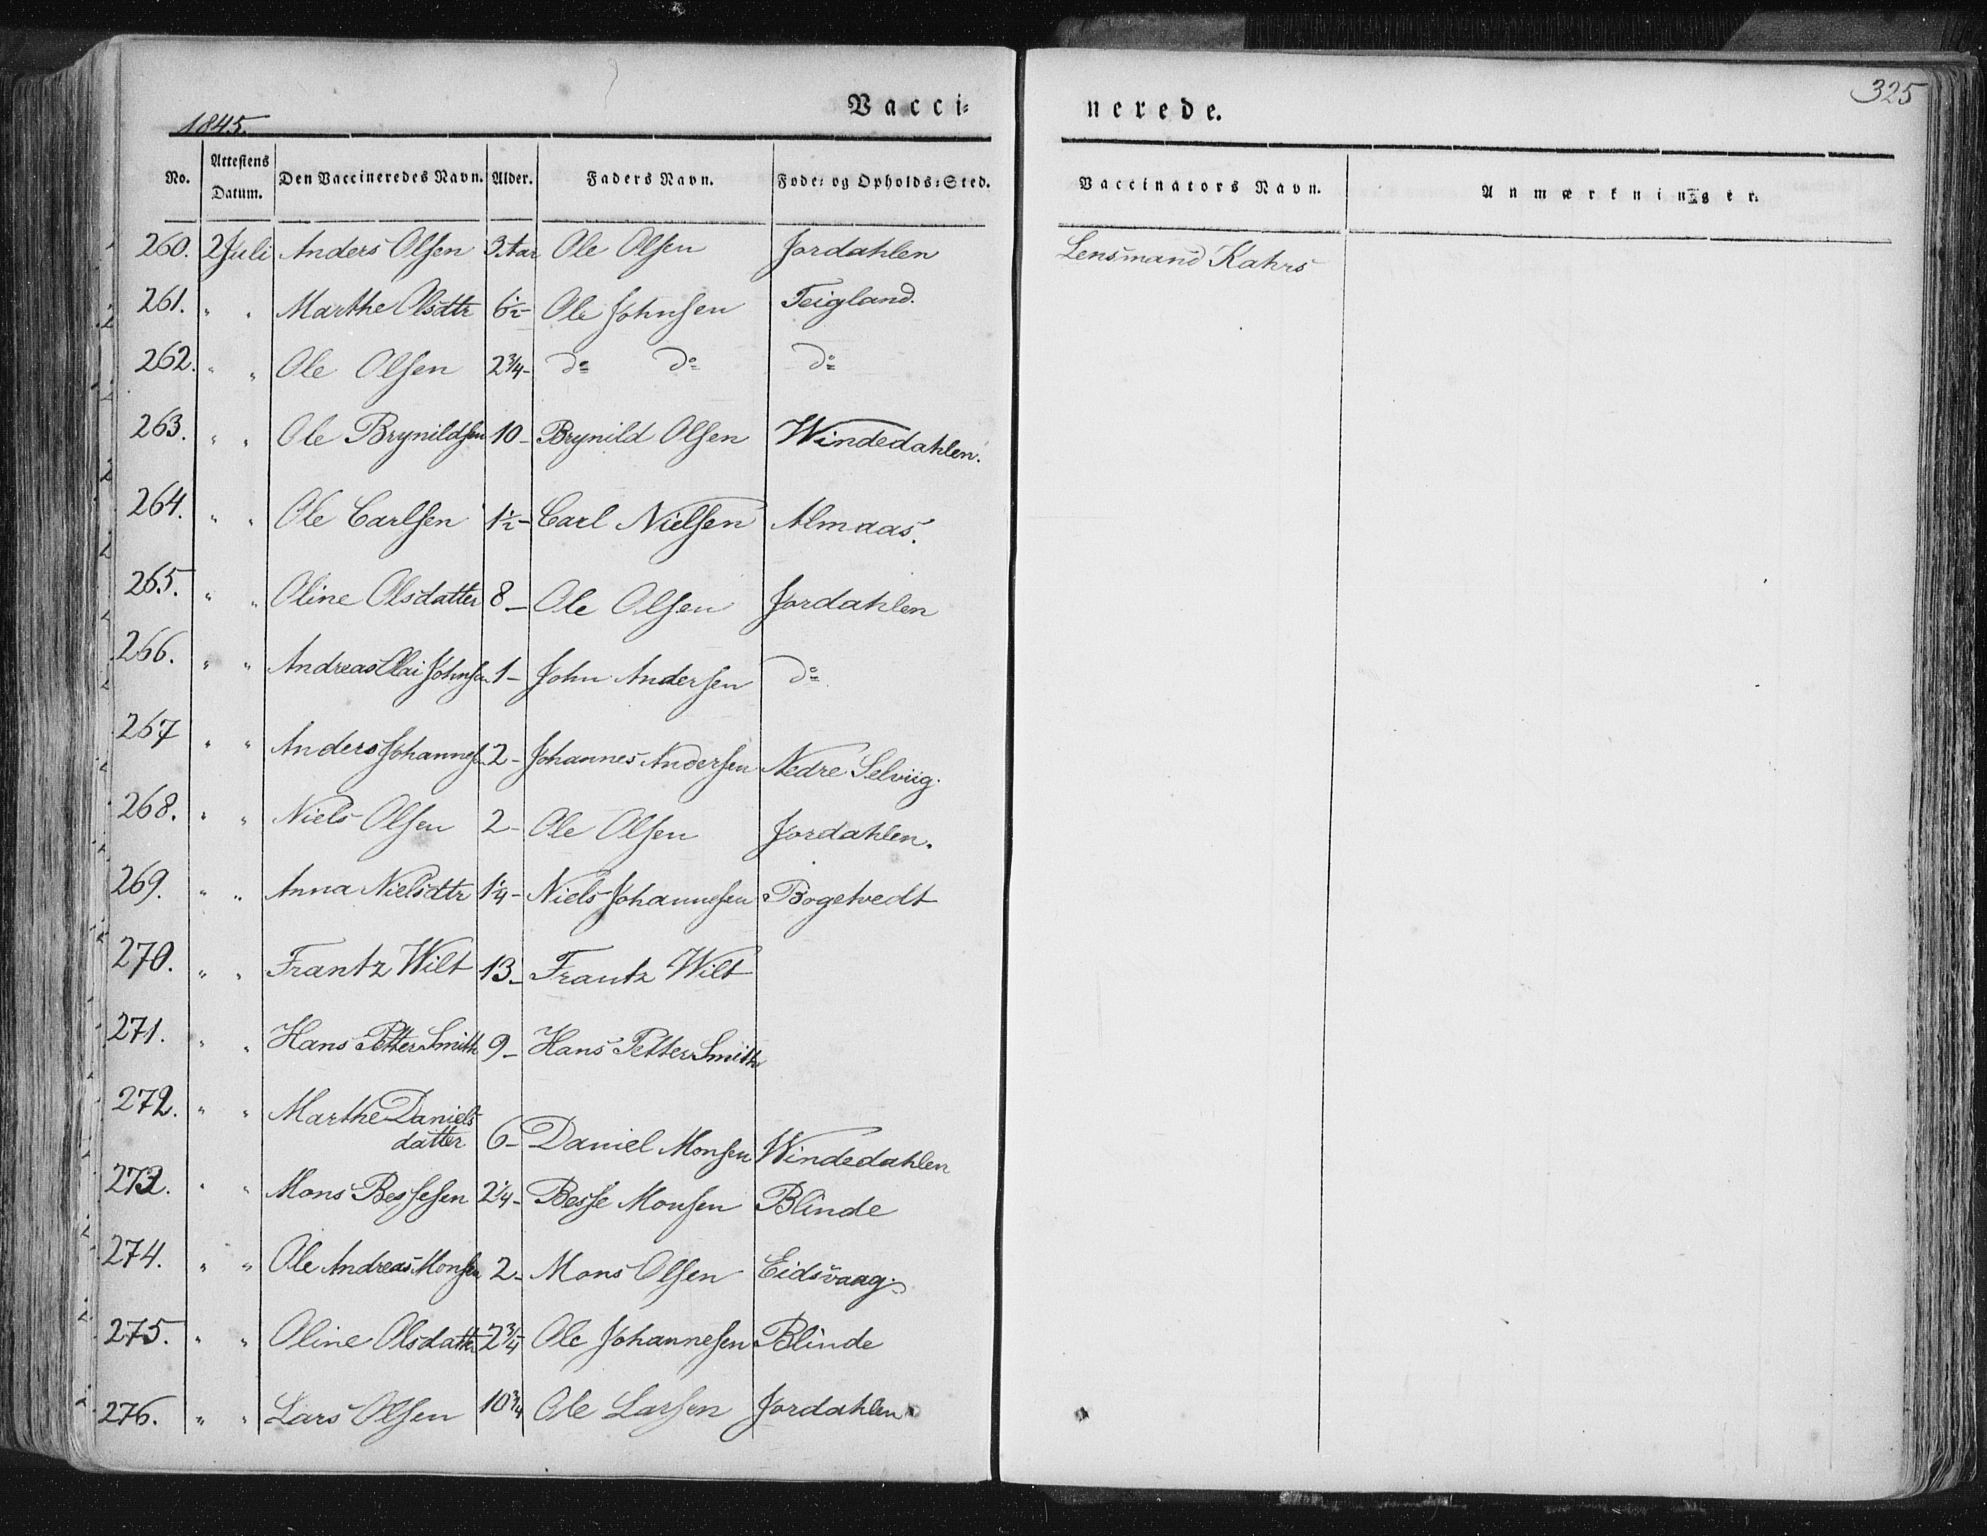 Vacci=
nerede.
325
1845.
No. Attestens Datum. Den Vaccineredes Navn. Alder. Faders Navn. Føde= og Opholds=Sted. Vaccinators Navn. Anmærkninger.
260. 2 Juli Anders Olsen 3 Aar Ole Olsen Jordahlen Lensmand Kahrs
261. " " Marthe Olsdttr 6½ - Ole Johnsen Teigland.
262. " " Ole Olsen 2¾ - do do do
263. " " Ole Brynildsen 10 - Brynild Olsen Windedahlen.
264. " " Ole Carlsen 1½ - Carl Nielsen Almaas.
265. " " Oline Olsdatter 8 - Ole Olsen Jordahlen
266. " " Andreas Olai Johnsen 1 - John Andersen do
267 " " Anders Johannes 2 - Johannes Andersen Nedre Selviig.
268. " " Niels Olsen 2 - Ole Olsen Jordahlen.
269. " " Anna Nielsdttr 1¼ - Niels Johannesen Bogetvedt
270. " " Frantz Wilt 13 - Frantz Wilt
271. " " Hans Petter Smith 9 - Hans Petter Smith
272. " " Marthe Daniels-
datter 6 - Daniel Monsen Windedahlen
273. " " Mons Bessesen 2¼ - Besse Monsen Blinde
274. " " Ole Andreas Monsen 2 - Mons Olsen Eidsvaag.
275. " " Oline Olsdatter 2¾ Ole Johannesen Blinde
276. " " Lars Olsen 10¾ Ole Larsen Jordahlen